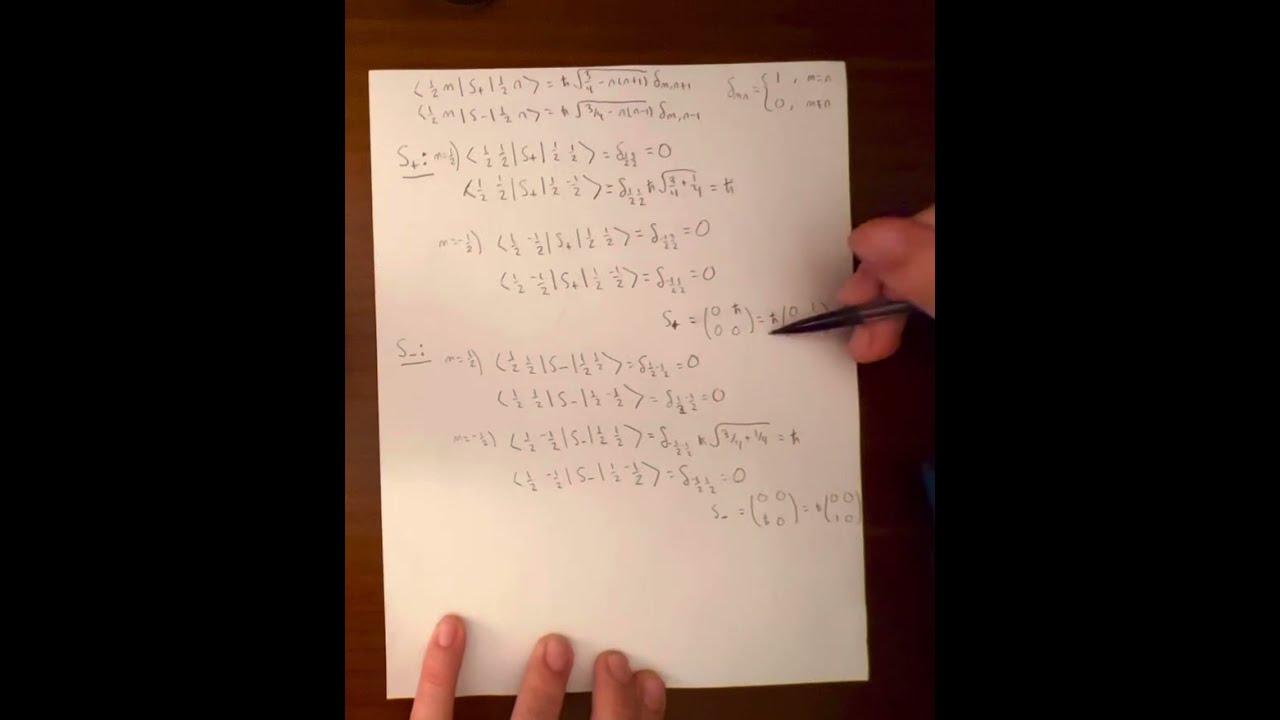 ⟨½ m | S₊ | ½ n⟩ = ħ √(3/4 − n(n+1)) δ_{m,n+1}
δ_{mn} = { 1 , m=n
0 , m≠n
⟨½ m | S₋ | ½ n⟩ = ħ √(3/4 − n(n−1)) δ_{m,n−1}
S₊: m=½) ⟨½ ½ | S₊ | ½ ½⟩ = δ_{½ 3/2} = 0
⟨½ ½ | S₊ | ½ -½⟩ = δ_{½ ½} ħ √(3/4 + 1/4) = ħ
m=-½) ⟨½ -½ | S₊ | ½ ½⟩ = δ_{-½ 3/2} = 0
⟨½ -½ | S₊ | ½ -½⟩ = δ_{-½ ½} = 0
S₊ = (0 ħ; 0 0) = ħ (0 1
S₋: m=½) ⟨½ ½ | S₋ | ½ ½⟩ = δ_{½ -½} = 0
⟨½ ½ | S₋ | ½ -½⟩ = δ_{½ -3/2} = 0
m=-½) ⟨½ -½ | S₋ | ½ ½⟩ = δ_{-½ -½} ħ √(3/4 + 1/4) = ħ
⟨½ -½ | S₋ | ½ -½⟩ = = 0
S₋ = (0 0; ħ 0) = ħ (0 0; 1 0)